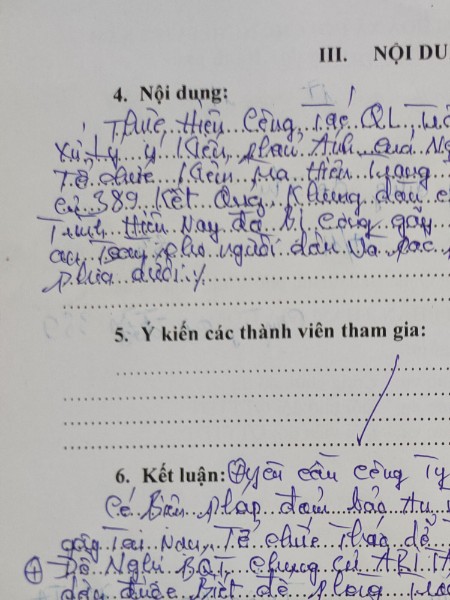 III. NỘI DU
4. Nội dung:
Thực Hiện Công Tác QL, Trả
Xử Lý ý Kiến phản Ánh của Ng
Tổ chức Kiểm tra Hiện trạng
cư 389 Kết Quả Khung dàn
Trước Hiện Nay đã Bị Cong gãy
an Toàn cho người dân Và các
phía dưới
5. Ý kiến các thành viên tham gia:
6. Kết luận: ⊕ Yêu cầu Công Ty
Có Biện pháp đảm bảo
gây Tai Nạn, Tổ chức tháo dỡ
⊕ Đề Nghị BQT chung cư
dân được Biết để phòng